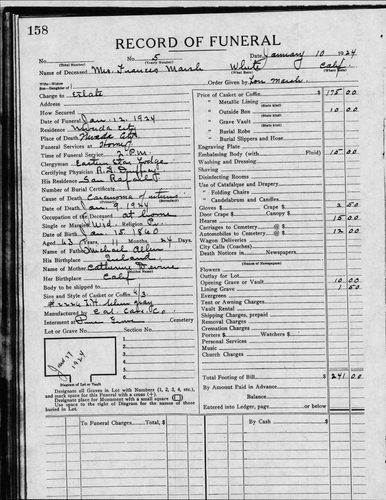 158
RECORD OF FUNERAL
No. No. 5 Date, January 10 1924
(Total Number) (Yearly Number)
Name of Deceased Mrs. Frances Marsh White Calif
(What Race) (Where Born)
Order Given by Tom Marsh
Charge to Estate
Address
How Secured
Date of Funeral Jan 12, 1924
Residence Nevada City
Place of Death Nevada City
Funeral Services at Home
Time of Funeral Service 2 P.M.
Clergyman Eastern Star Lodge
Certifying Physician
His Residence San Rafael
Number of Burial Certificate
Cause of Death Carcinoma of uterus
Date of Death Jan 9, 1924
Occupation of the Deceased at home
Single or Married Wid. Religion P.
Date of Birth Jan 15 1860
Aged 63 Years, 11 Months 24 Days
Name of Father Michael
His Birthplace Ireland
Name of Mother Catherine
Her Birthplace Calif
Body to be shipped to
Size and Style of Casket or Coffin 6/3
Manufactured by Cal. Cask. Co
Interment at Cemetery
Lot or Grave No. Section No.
1.
2.
3.
4.
5.
6.
Jan 17 1924
Diagram of Lot or Vault
Designate all Graves in Lot with Numbers (1, 2, 3, 4, etc.), and mark space for this Funeral with a cross (+).
Designate place for Monument with a small square
Use space to right of Diagram for the names of those buried in Lot.
Price of Casket or Coffin $ 175 00
" Metallic Lining
" Outside Box 10 00
" Grave Vault
" Burial Robe
" Burial Slippers and Hose
Engraving Plate
Embalming Body (with Fluid) 15 00
Washing and Dressing
Shaving
Disinfecting Rooms
Use of Catafalque and Drapery
" Folding Chairs
" Candelabrum and Candles
Gloves $ Crape $ 2 50
Door Crape $ Canopy $
Hearse 15 00
Carriages to Cemetery @ $
Automobiles to Cemetery @ $ 12 00
Wagon Deliveries
City Calls (Coaches)
Death Notices in Newspapers
(Names of Newspapers)
Flowers
Outlay for Lot
Opening Grave or Vault 10 00
Lining Grave 1 50
Evergreen
Tent or Awning Charges
Vault Rental
Shipping Charges, prepaid
Removal Charges
Cremation Charges
Porters $ Watchers $
Personal Services
Music
Church Charges
Total Footing of Bill $ 241 00
By Amount Paid in Advance
Balance
Entered into Ledger, page or below
To Funeral Charges Total, $ By Cash $